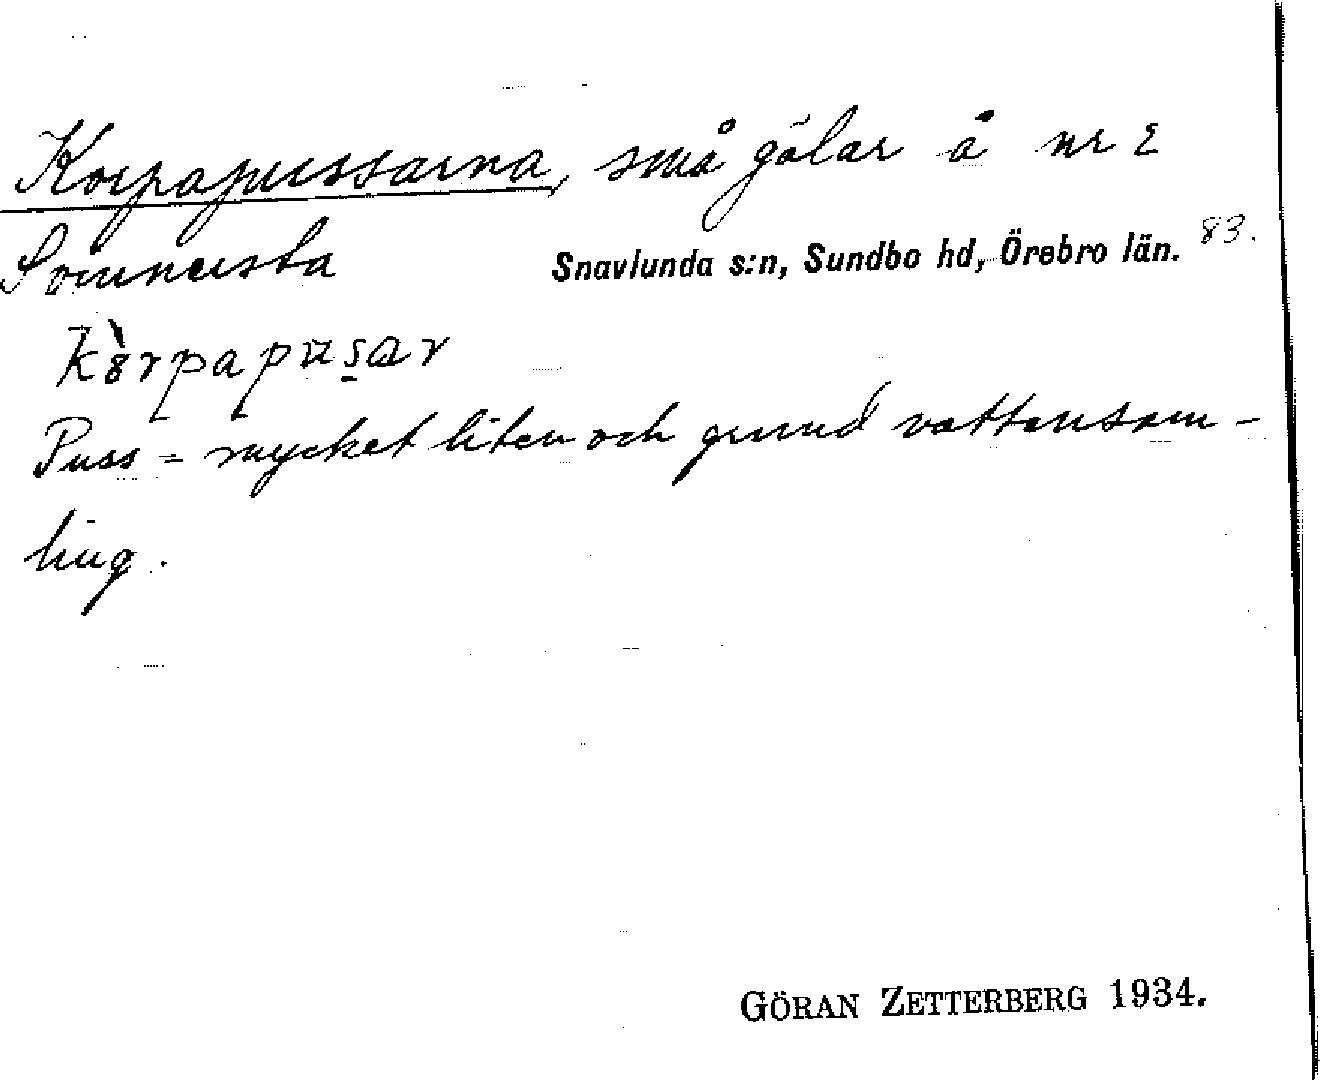 Korpapussarna, små gölar å nr 2
Sommersta
Snavlunda s:n, Sundbo hd, Örebro län. 83.
Puss = mycket liten och grund vattensam-
ling.
GÖRAN ZETTERBERG 1934.